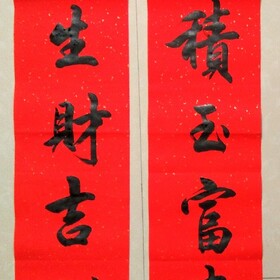 積玉富
生財吉